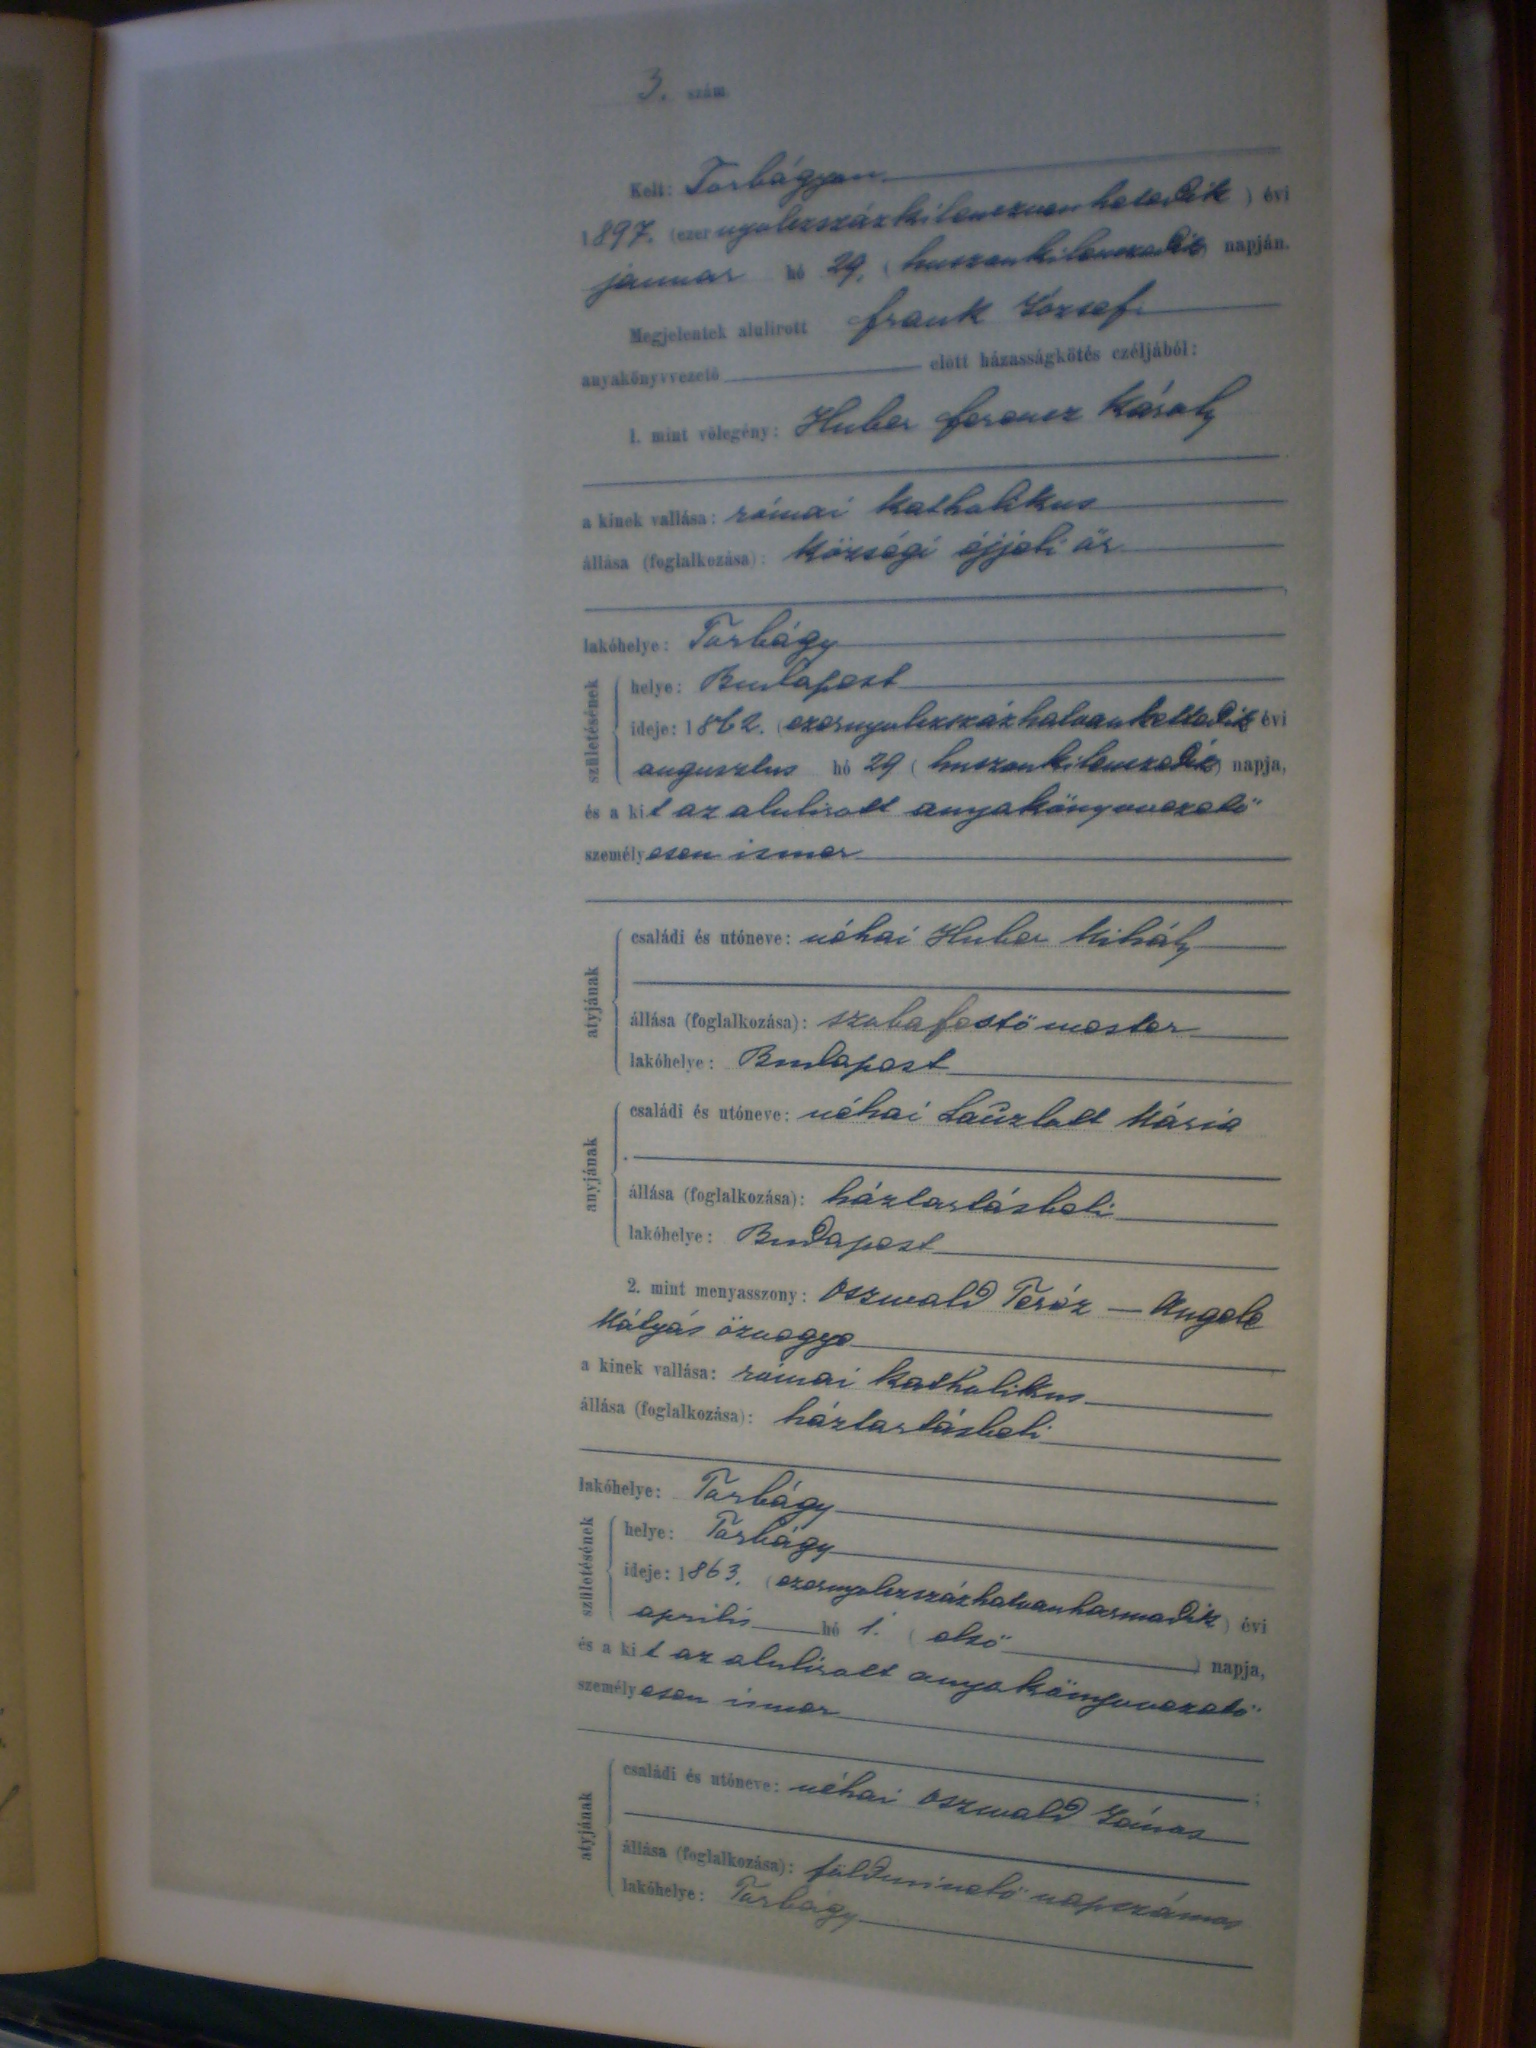 3. szám.
Kelt: Torbágyon
1897. (ezernyolczszázkilenczvenhetedik) évi
januar hó 29. (huszonkilenczedik) napján.
Megjelentek alulirott Frank József
anyakönyvvezető előtt házasságkötés czéljából:
1. mint vőlegény: Huber Ferencz Károly
a kinek vallása: római katholikus
állása (foglalkozása): községi éjjeli őr
lakóhelye: Torbágy
születésének
helye: Budapest
ideje: 1862. (ezernyolczszázhatvankettedik) évi
augusztus hó 29 (huszonkilenczedik) napja,
és a kit az alulirott anyakönyvvezető
személyesen ismer
atyjának
családi és utóneve: néhai Huber Mihály
állása (foglalkozása): szobafestő mester
lakóhelye: Budapest
anyjának
családi és utóneve: néhai Mária
állása (foglalkozása): háztartásbeli
lakóhelye: Budapest
2. mint menyasszony: Oszwald Teréz — Angele
Mátyás özvegye
a kinek vallása: római katholikus
állása (foglalkozása): háztartásbeli
lakóhelye: Torbágy
születésének
helye: Torbágy
ideje: 1863. (ezernyolczszázhatvanharmadik) évi
április hó 1. (első) napja,
és a kit az alulirott anyakönyvvezető
személyesen ismer
atyjának
családi és utóneve: néhai Oszwald János
állása (foglalkozása): földmivelő napszámos
lakóhelye: Torbágy